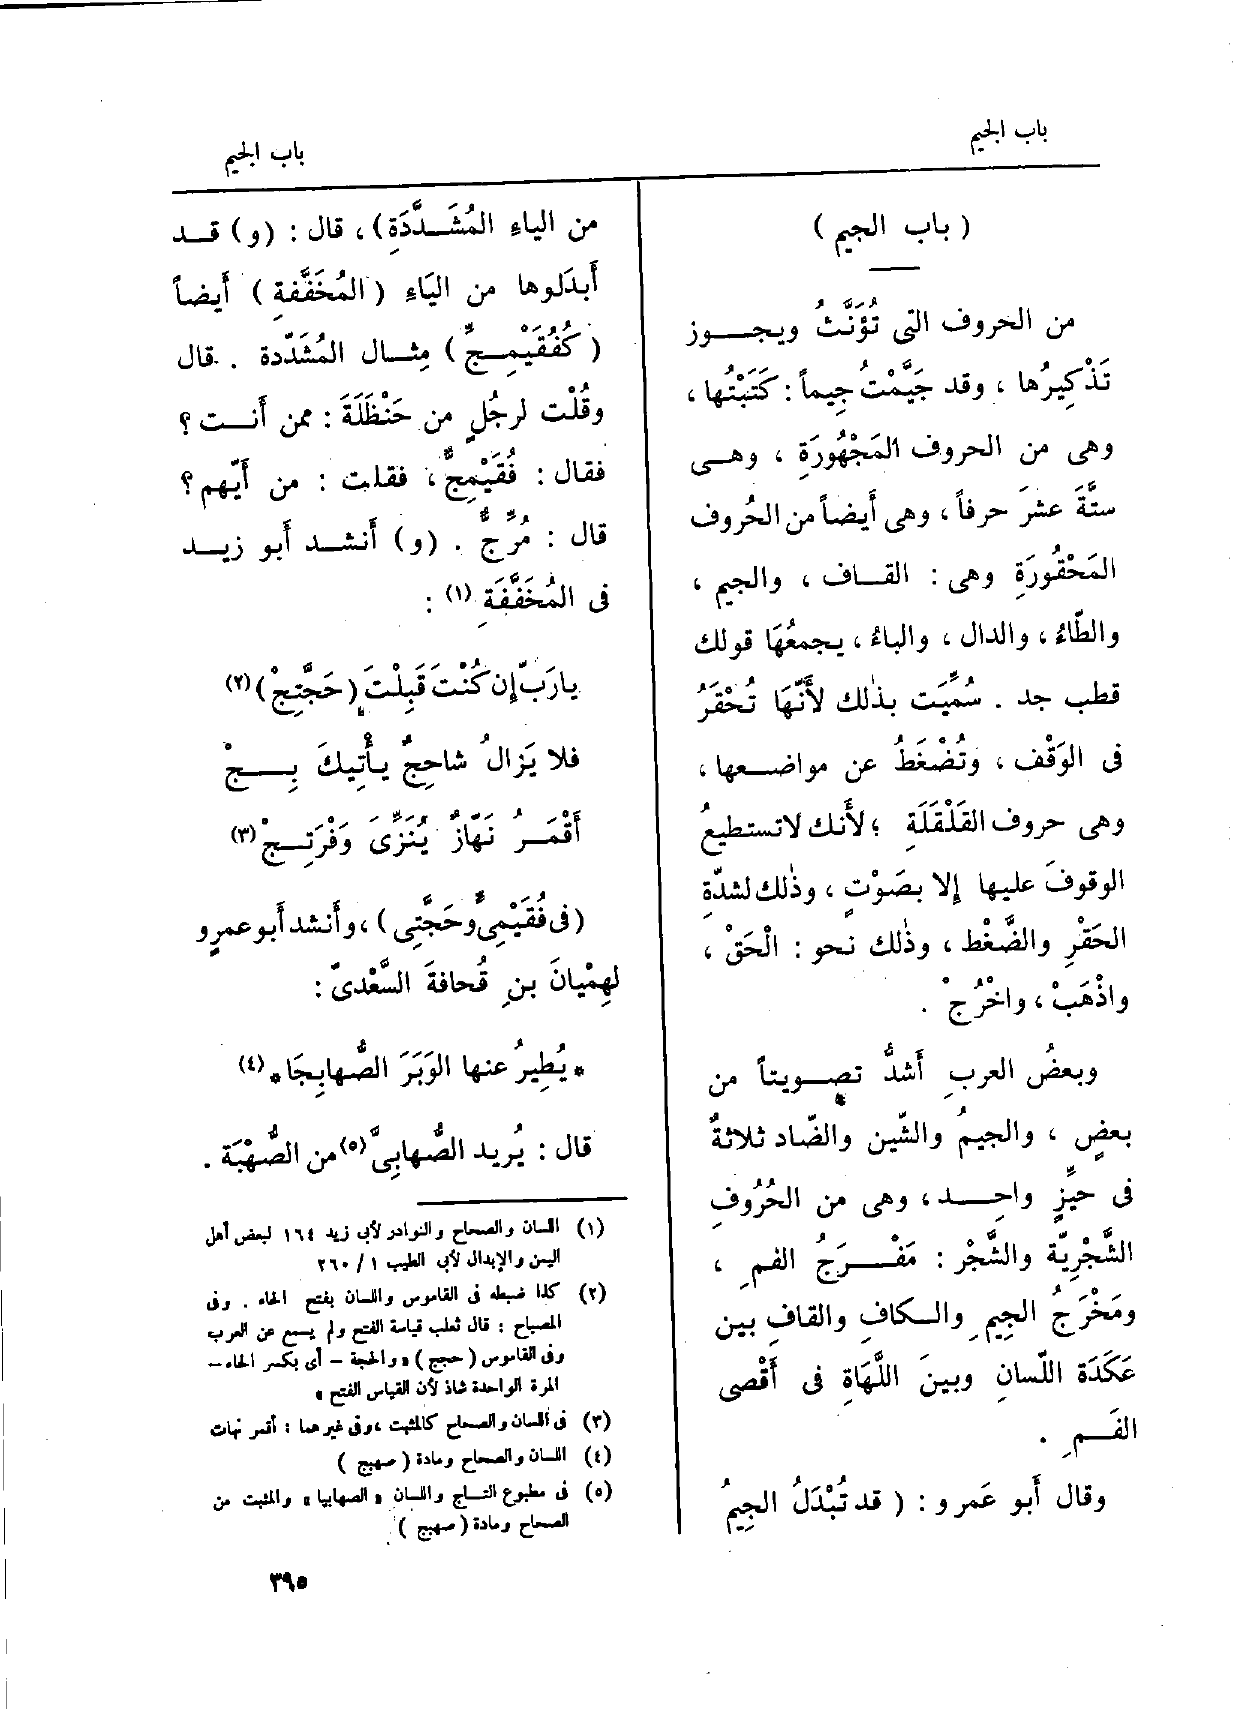 باب الجيم
باب الجيم
( باب الجيم )
من الحروف التى تُؤَنَّثُ ويجـــوز
تَذْكِيرُها ، وقد جَيَّمْتُ جِيماً : كَتَبْتُها ،
وهى من الحروف المَجْهُورَةِ ، وهــى
ستَّةَ عشرَ حرفاً ، وهى أيضاً من الحُروف
المَحْقُورَةِ وهى : القــاف ، والجيم ،
والطّاءُ ، والدال ، والباءُ ، يجمعُهَا قولك
قطب جد . سُمِّيَت بذٰلك لأَنَّهَا تُحْقَرُ
فى الوَقْف ، وتُضْغَطُ عن مواضـعها ،
وهى حروف القَلْقَلَةِ ؛ لأَنك لاتستطيعُ
الوقوفَ عليها إلا بصَوْتٍ ، وذٰلك لشدَّةِ
الحَقْرِ والضَّغْط ، وذٰلك نحو : الْحَقْ ،
واذْهَبْ ، واخْرُجْ .
وبعضُ العربِ أَشدُّ تصـويتاً من
بعضٍ ، والجيمُ والشّين والضّاد ثلاثةٌ
فى حيِّزٍ واحِــد ، وهى من الحُرُوفِ
الشَّجْرِيَّة والشَّجْر : مَفْـــرَجُ الفمِ ،
ومَخْرَجُ الجِيمِ والـكافِ والقافِ بين
عَكَدَة اللّسانِ وبينَ اللَّهَاةِ فى أَقْصى
الفَــمِ .
وقال أَبو عَمرو : ( قد تُبْدَلُ الجِيمُ
من الياءِ المُشَــدَّدَةِ ) ، قال : (و) قــد
أَبدَلوها من اليَاءِ ( المُخَفَّفةِ ) أَيضاً
( كَفُقَيْمِــجٍّ ) مِثــال المُشَدّدة . قال
وقُلْت لرجُلٍ من حَنْظَلَةَ : ممن أَنــت ؟
فقال : فُقَيْمِجٌّ ، فقلت : من أَيّهم ؟
قال : مُرِّجٌّ . (و) أَنشــد أَبو زيــد
فى المُخَفَّفَةِ (١) :
يارَبّ إن كُنْتَ قَبِلْتَ ( حَجَّتِجْ ) (٢)
فلا يَزالُ شاحِجٌ يأْتِيكَ بِـــجْ
أَقْمَــرُ نَهّازٌ يُنَزِّى وَفْرَتِــجْ (٣)
( فى فُقَيْمِىٍّ وحَجَّتِى ) ، وأَنشد أَبو عمرٍو
لهِمْيانَ بنِ قُحافةَ السَّعْدىّ :
* يُطِيرُ عنها الوَبَرَ الصُّهابِجَا * (٤)
قال : يُريد الصُّهابِىَّ (٥) من الصُّهْبَة .
(١) اللسان والصحاح والنوادر لأبى زيد ١٦٤ لبعض أهل
اليمن والإبدال لأبى الطيب ١ / ٢٦٠
(٢) كذا ضبطه فى القاموس واللسان بفتح الحاء . وفى
المصباح : قال ثعلب قياسه الفتح ولم يسمع عن العرب
وفى القاموس ( حجج ) « والحجة – أى بكسر الحاء –
المرة الواحدة شاذ لأن القياس الفتح »
(٣) فى اللسان والصحاح كالمثبت ، وفى غيرهما : أقمر نهات
(٤) اللسان والصحاح ومادة ( صهبج )
(٥) فى مطبوع التـاج واللسان « الصهابيا » والمثبت من
الصحاح ومادة ( صهبج )
٣٩٥